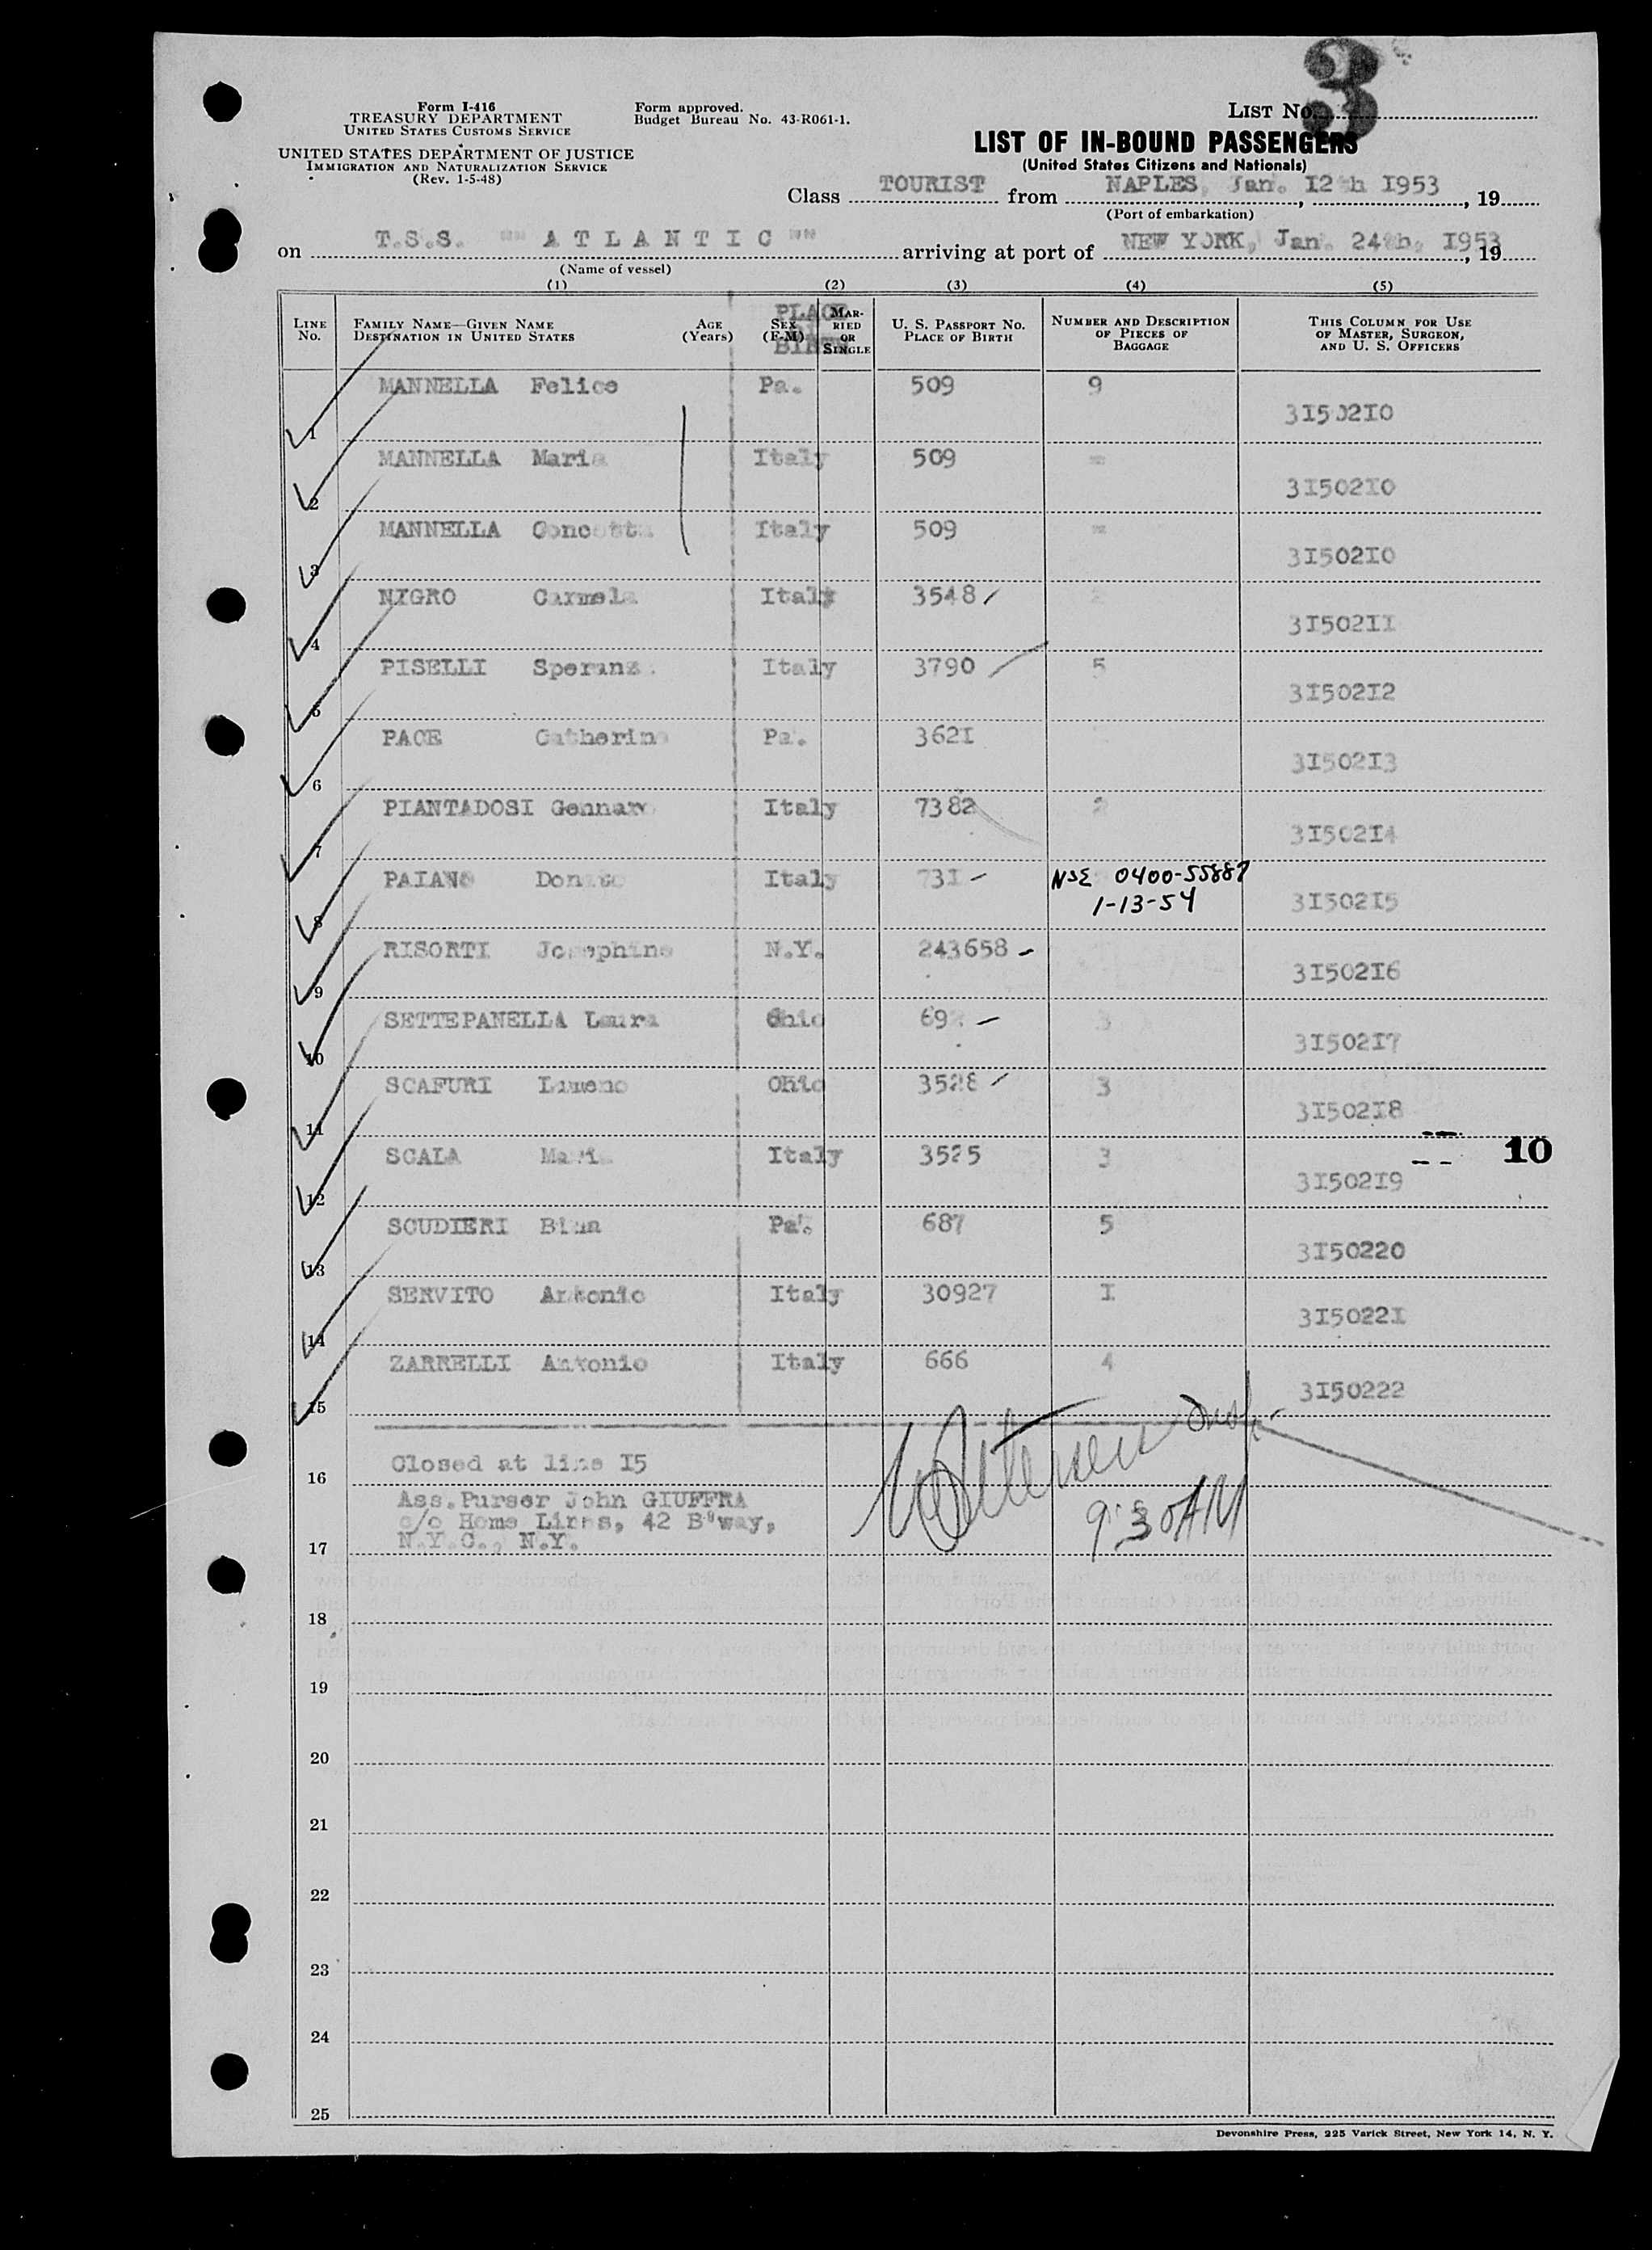 3
Form I-416
TREASURY DEPARTMENT
UNITED STATES CUSTOMS SERVICE
UNITED STATES DEPARTMENT OF JUSTICE
IMMIGRATION AND NATURALIZATION SERVICE
(Rev. 1-5-48)
Form approved.
Budget Bureau No. 43-R061-1.
LIST No.
LIST OF IN-BOUND PASSENGERS
(United States Citizens and Nationals)
Class TOURIST from NAPLES, Jan. 12th 1953, 19
(Port of embarkation)
on T.S.S. "" A T L A N T I C "" arriving at port of NEW YORK, Jan. 24th, 1953, 19
(Name of vessel)
(1) (2) (3) (4) (5)
LINE No.
FAMILY NAME—GIVEN NAME
DESTINATION IN UNITED STATES
AGE (Years)
SEX (F-M)
PLACE OF BIRTH
MARRIED OR SINGLE
U. S. PASSPORT NO.
PLACE OF BIRTH
NUMBER AND DESCRIPTION OF PIECES OF BAGGAGE
THIS COLUMN FOR USE OF MASTER, SURGEON, AND U. S. OFFICERS
1 MANNELLA Felice Pa. 509 9 3I502I0
2 MANNELLA Maria Italy 509 = 3I502I0
3 MANNELLA Concetta Italy 509 = 3I502I0
4 NIGRO Carmela Italy 3548 3I502II
5 PISELLI Speranz. Italy 3790 5 3I502I2
6 PACE Catherine Pa. 362I 3I502I3
7 PIANTADOSI Gennaro Italy 7382 2 3I502I4
8 PAIANO Donato Italy 73I NSE 0400-55887 1-13-54 3I502I5
9 RISORTI Josephine N.Y. 243658 3I502I6
10 SETTEPANELLA Laura Ohio 69 3 3I502I7
11 SCAFURI Ohio 3528 3 3I502I8
12 SCALA Maria Italy 3525 3 3I502I9
10
13 SCUDIERI Pa. 687 5 3I50220
14 SERVITO Antonio Italy 30927 I 3I5022I
15 ZARRELLI Antonio Italy 666 4 3I50222
16 Closed at line I5
Ass.Purser John GIUFFRA
c/o Home Lines, 42 B'way,
17 N.Y.C., N.Y.
9:30AM
18
19
20
21
22
23
24
25
Devonshire Press, 225 Varick Street, New York 14, N. Y.